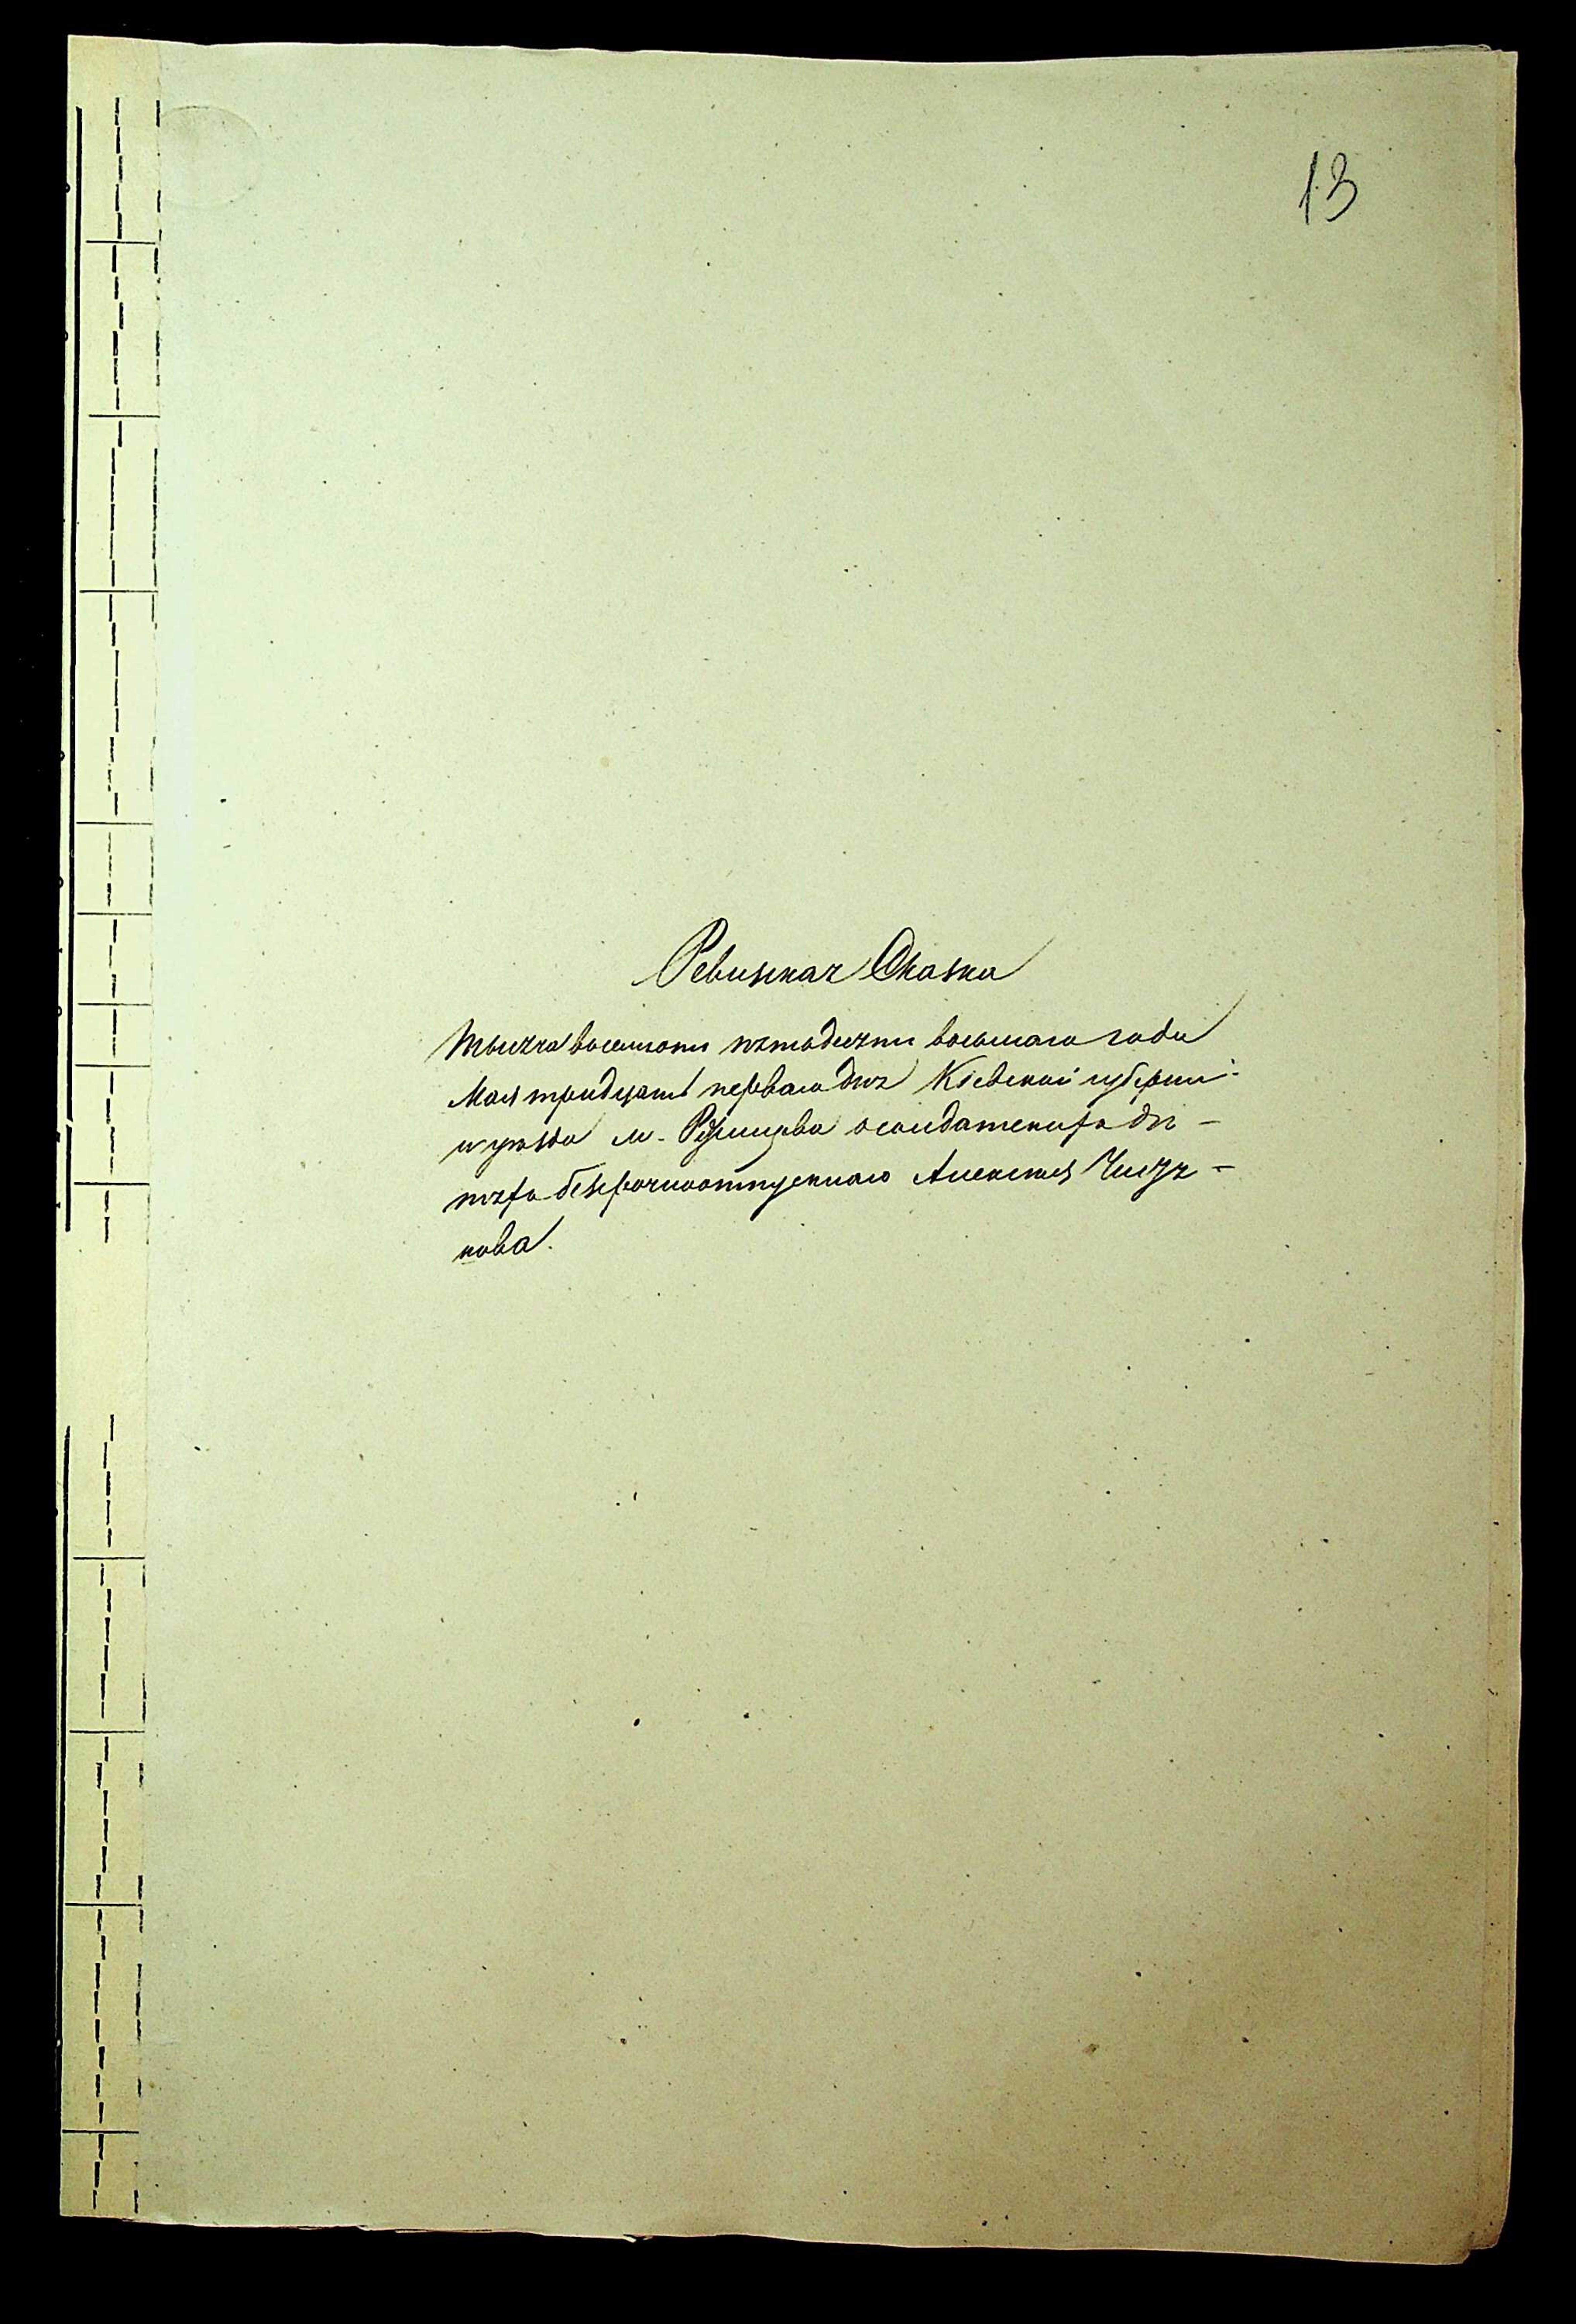 13
Ревизская Сказка
Тысяча восемсотъ пятьдесятъ восьмаго года
Мая тридцать перваго дня Кіевской губерніи
и уѣзда м. о солдатскихъ дѣ-
тяхъ безсрочноотпускнаго Алексѣя
кова.